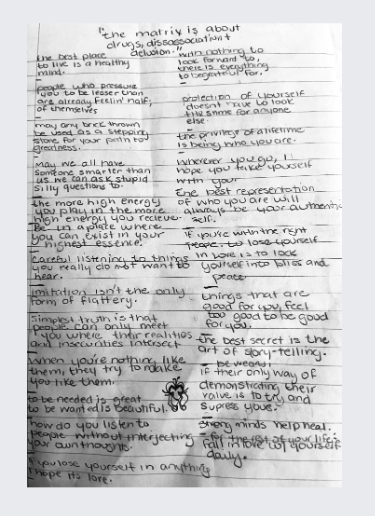 "the matrix is about
drugs, dissassociation &
delusion."
the best place
to live is a healthy
mind.
people who pressure
you to be lesser than
are already feelin' half,
of themselves
may any brick thrown
be used as a stepping
stone for your path to
greatness.
may we all have
someone smarter than
us we can ask stupid
silly questions to.
the more high energy
you play in the more
high energy you recieve.
Be in a place where
you can exist in your
highest essence.
careful listening to things
you really do not want to
hear.
imitation isn't the only
form of flattery.
simplest truth is that
people can only meet
you where their realities
and insecurities intersect
When you're nothing like
them, they try to make
you like them.
to be needed is great
to be wanted is beautiful.
how do you listen to
people without interjecting
your own thoughts.
if you lose yourself in anything
I hope its love.
with nothing to
look forward to,
there is everything
to be grateful for.
protection of yourself
doesn't have to look
the same for anyone
else.
the privilege of a lifetime
is being who you are.
Wherever you go, I
hope you take yourself
with you.
the best representation
of who you are will
always be your authentic
self.
if you're with the right
people, to lose yourself
in love is to lock
yourself into bliss and
peace.
things that are
good for you, feel
too good to be good
for you.
the best secret is the
art of story-telling.
if their only way of
demonstrating their
value is to try and
supress yours.
strong minds help heal.
for the rest of your life:
fall in love w/ yourself
daily.